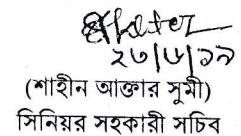 ২৩/৬/১৯
(শাহীন আক্তার সুমী)
সিনিয়র সহকারী সচিব